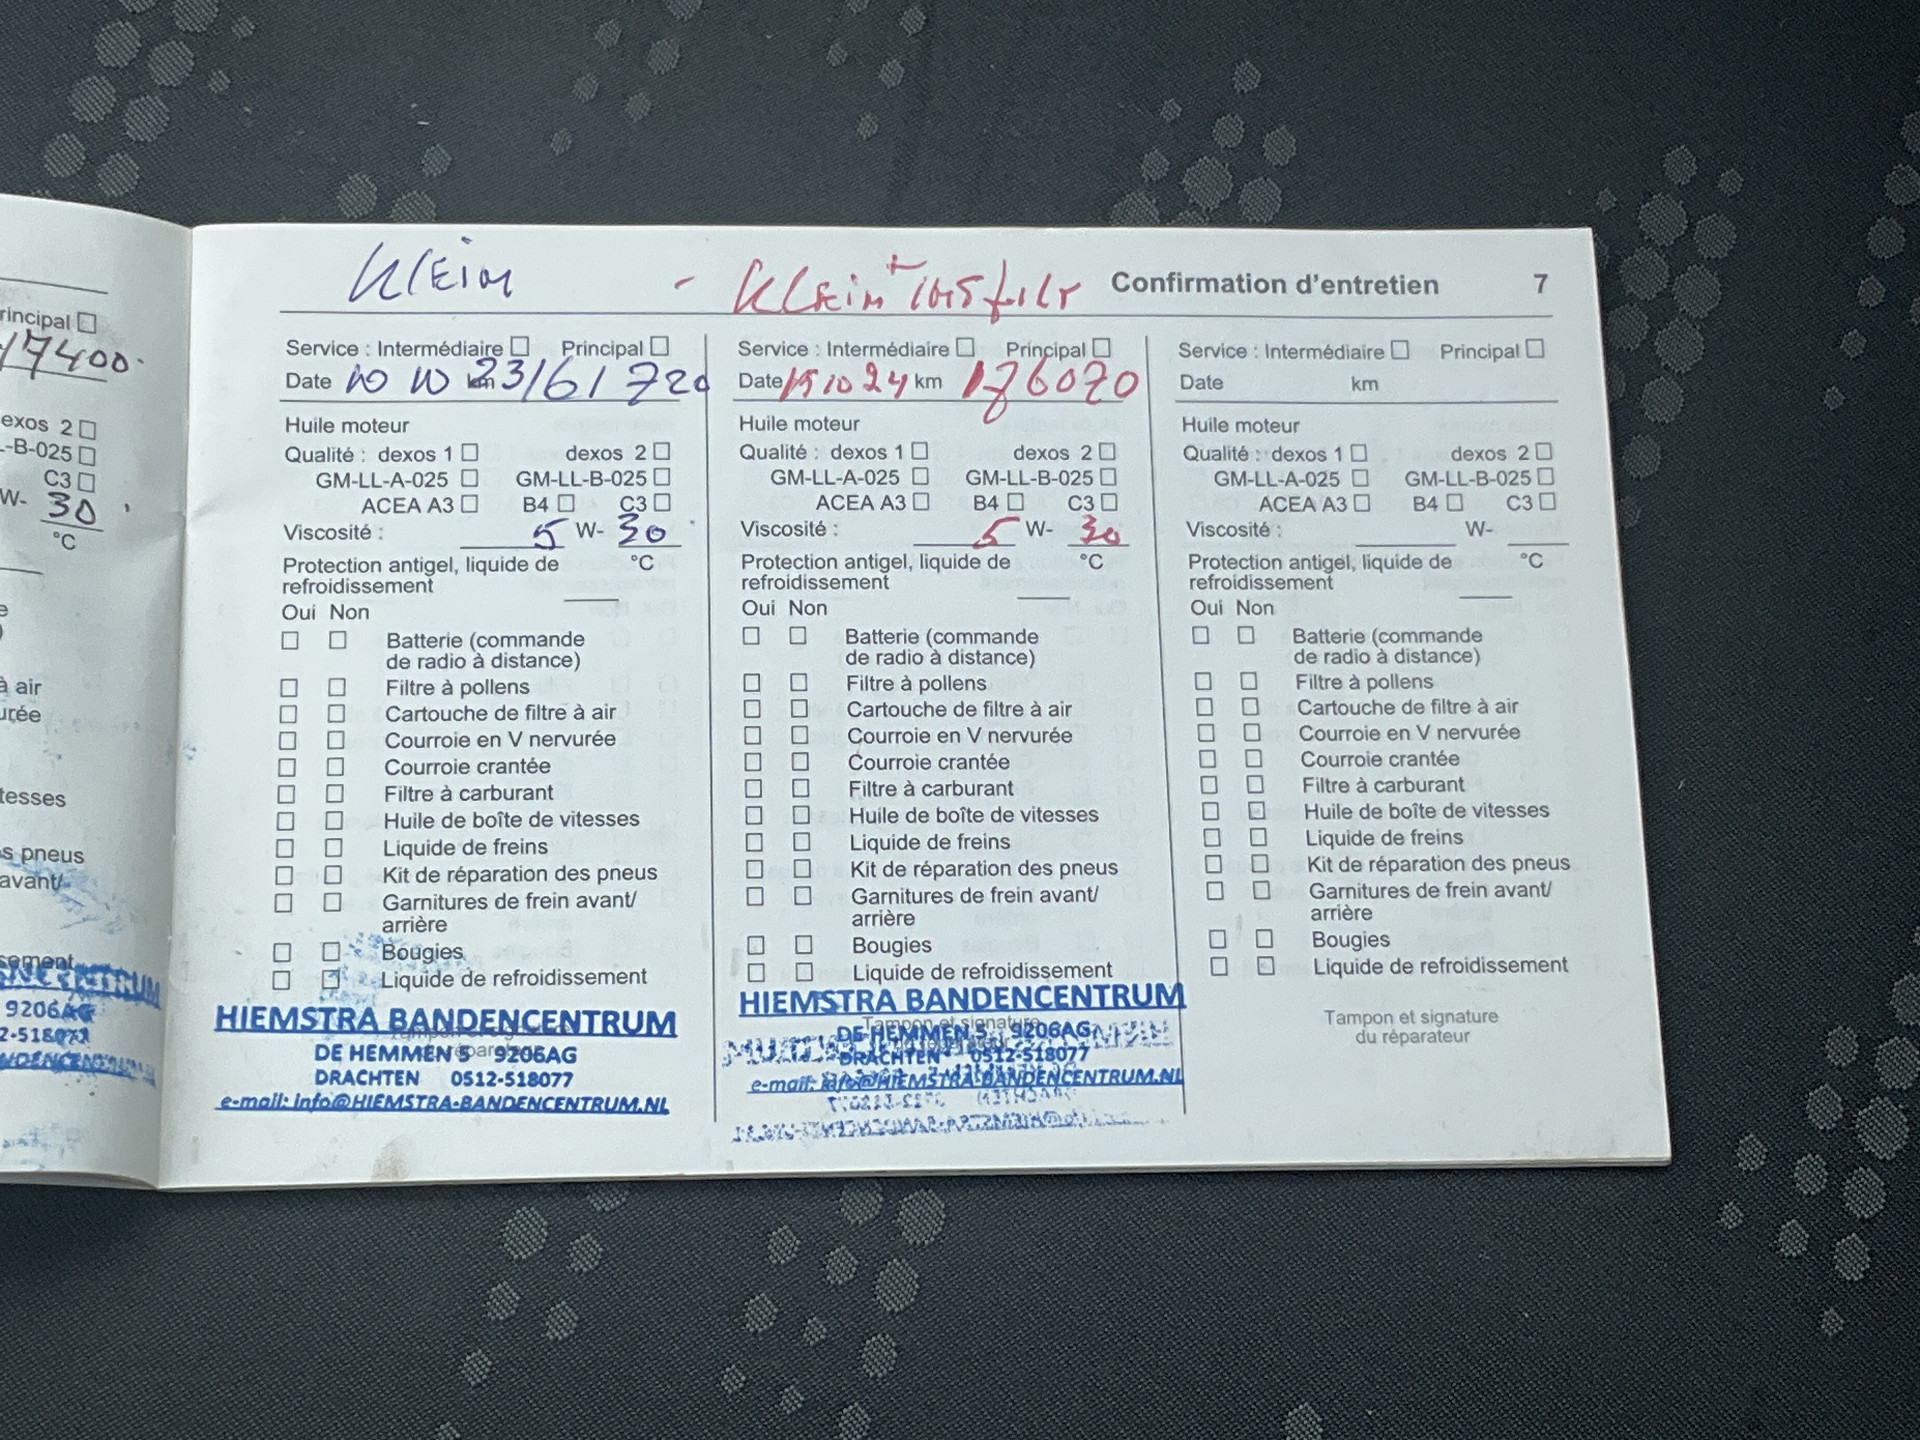 rincipal
17400.
exos 2
L-B-025
C3
W- 30
°C
à air
urée
tesses
s pneus
avant/
sement
ENCENTRUM
9206AG
2-518077
Klein
- Klein +
Confirmation d'entretien 7
Service : Intermédiaire Principal
Date 10 10 23/161720
km
Huile moteur
Qualité : dexos 1 dexos 2
GM-LL-A-025 GM-LL-B-025
ACEA A3 B4 C3
Viscosité : 5 W- 30
Protection antigel, liquide de °C
refroidissement
Oui Non
Batterie (commande
de radio à distance)
Filtre à pollens
Cartouche de filtre à air
Courroie en V nervurée
Courroie crantée
Filtre à carburant
Huile de boîte de vitesses
Liquide de freins
Kit de réparation des pneus
Garnitures de frein avant/
arrière
Bougies
Liquide de refroidissement
HIEMSTRA BANDENCENTRUM
DE HEMMEN 5 9206AG
DRACHTEN 0512-518077
e-mail: info@HIEMSTRA-BANDENCENTRUM.NL
Service : Intermédiaire Principal
Date 15 10 24 km 176070
Huile moteur
Qualité : dexos 1 dexos 2
GM-LL-A-025 GM-LL-B-025
ACEA A3 B4 C3
Viscosité : 5 W- 30
Protection antigel, liquide de °C
refroidissement
Oui Non
Batterie (commande
de radio à distance)
Filtre à pollens
Cartouche de filtre à air
Courroie en V nervurée
Courroie crantée
Filtre à carburant
Huile de boîte de vitesses
Liquide de freins
Kit de réparation des pneus
Garnitures de frein avant/
arrière
Bougies
Liquide de refroidissement
HIEMSTRA BANDENCENTRUM
Tampon et signature
DE HEMMEN 5 9206AG
DRACHTEN 0512-518077
e-mail: info@HIEMSTRA-BANDENCENTRUM.NL
Service : Intermédiaire Principal
Date km
Huile moteur
Qualité : dexos 1 dexos 2
GM-LL-A-025 GM-LL-B-025
ACEA A3 B4 C3
Viscosité : W-
Protection antigel, liquide de °C
refroidissement
Oui Non
Batterie (commande
de radio à distance)
Filtre à pollens
Cartouche de filtre à air
Courroie en V nervurée
Courroie crantée
Filtre à carburant
Huile de boîte de vitesses
Liquide de freins
Kit de réparation des pneus
Garnitures de frein avant/
arrière
Bougies
Liquide de refroidissement
Tampon et signature
du réparateur